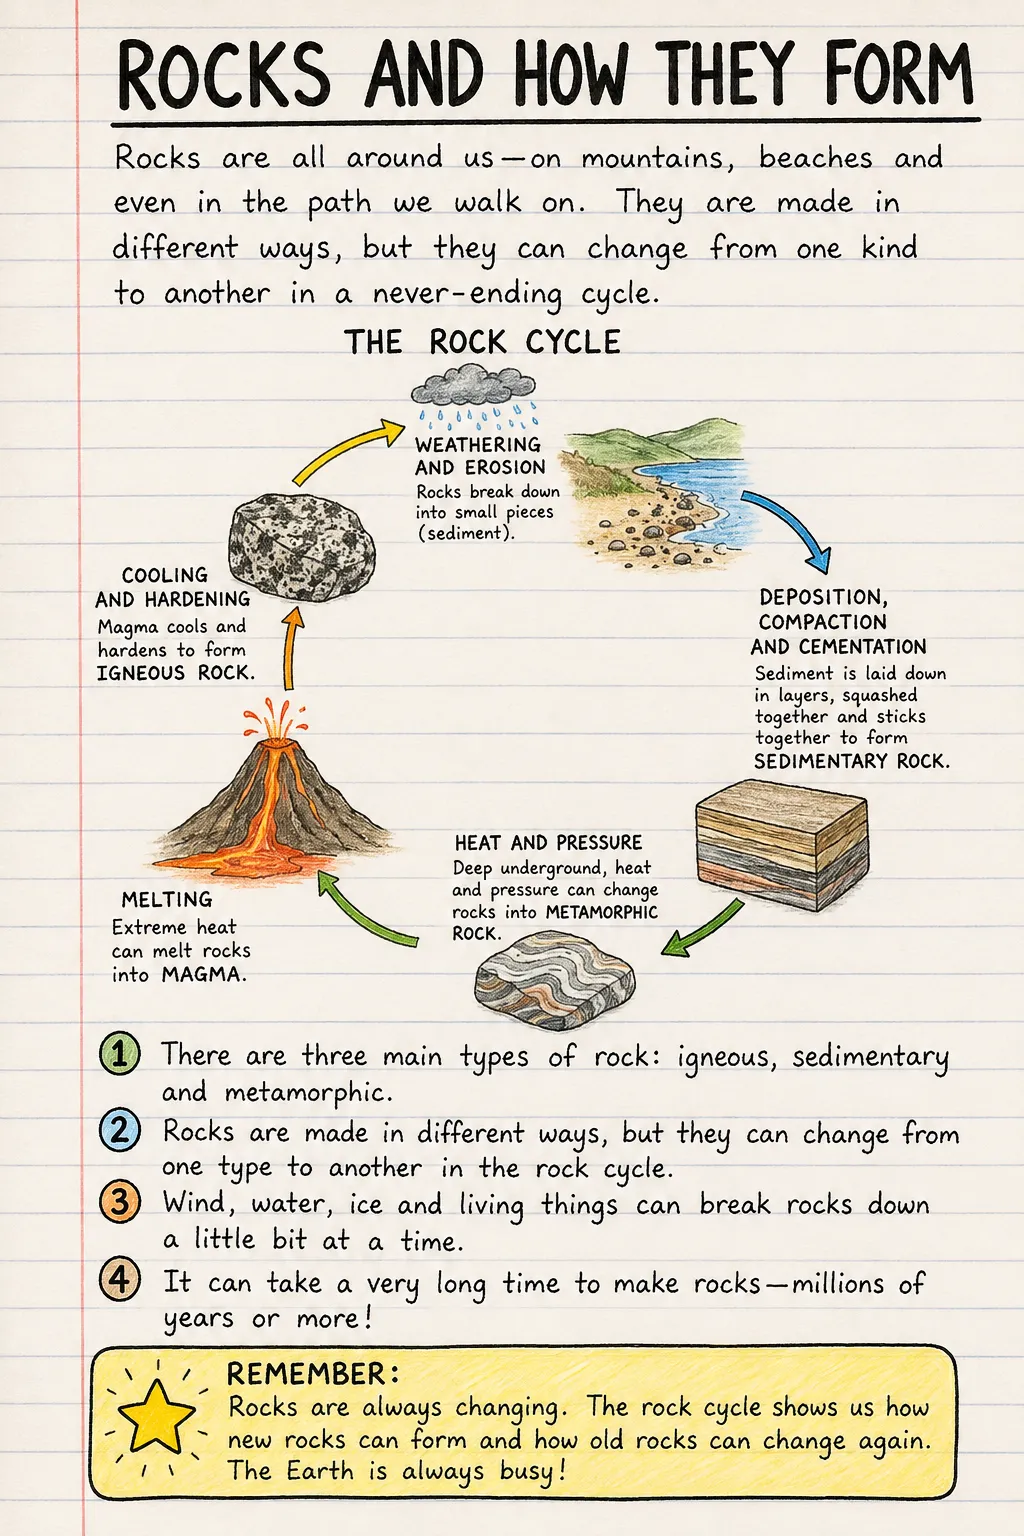 ROCKS AND HOW THEY FORM
Rocks are all around us—on mountains, beaches and
even in the path we walk on. They are made in
different ways, but they can change from one kind
to another in a never-ending cycle.
THE ROCK CYCLE
WEATHERING
AND EROSION
Rocks break down
into small pieces
(sediment).
COOLING
AND HARDENING
Magma cools and
hardens to form
IGNEOUS ROCK.
DEPOSITION,
COMPACTION
AND CEMENTATION
Sediment is laid down
in layers, squashed
together and sticks
together to form
SEDIMENTARY ROCK.
HEAT AND PRESSURE
Deep underground, heat
and pressure can change
rocks into METAMORPHIC
ROCK.
MELTING
Extreme heat
can melt rocks
into MAGMA.
1 There are three main types of rock: igneous, sedimentary
and metamorphic.
2 Rocks are made in different ways, but they can change from
one type to another in the rock cycle.
3 Wind, water, ice and living things can break rocks down
a little bit at a time.
4 It can take a very long time to make rocks—millions of
years or more!
REMEMBER:
Rocks are always changing. The rock cycle shows us how
new rocks can form and how old rocks can change again.
The Earth is always busy!